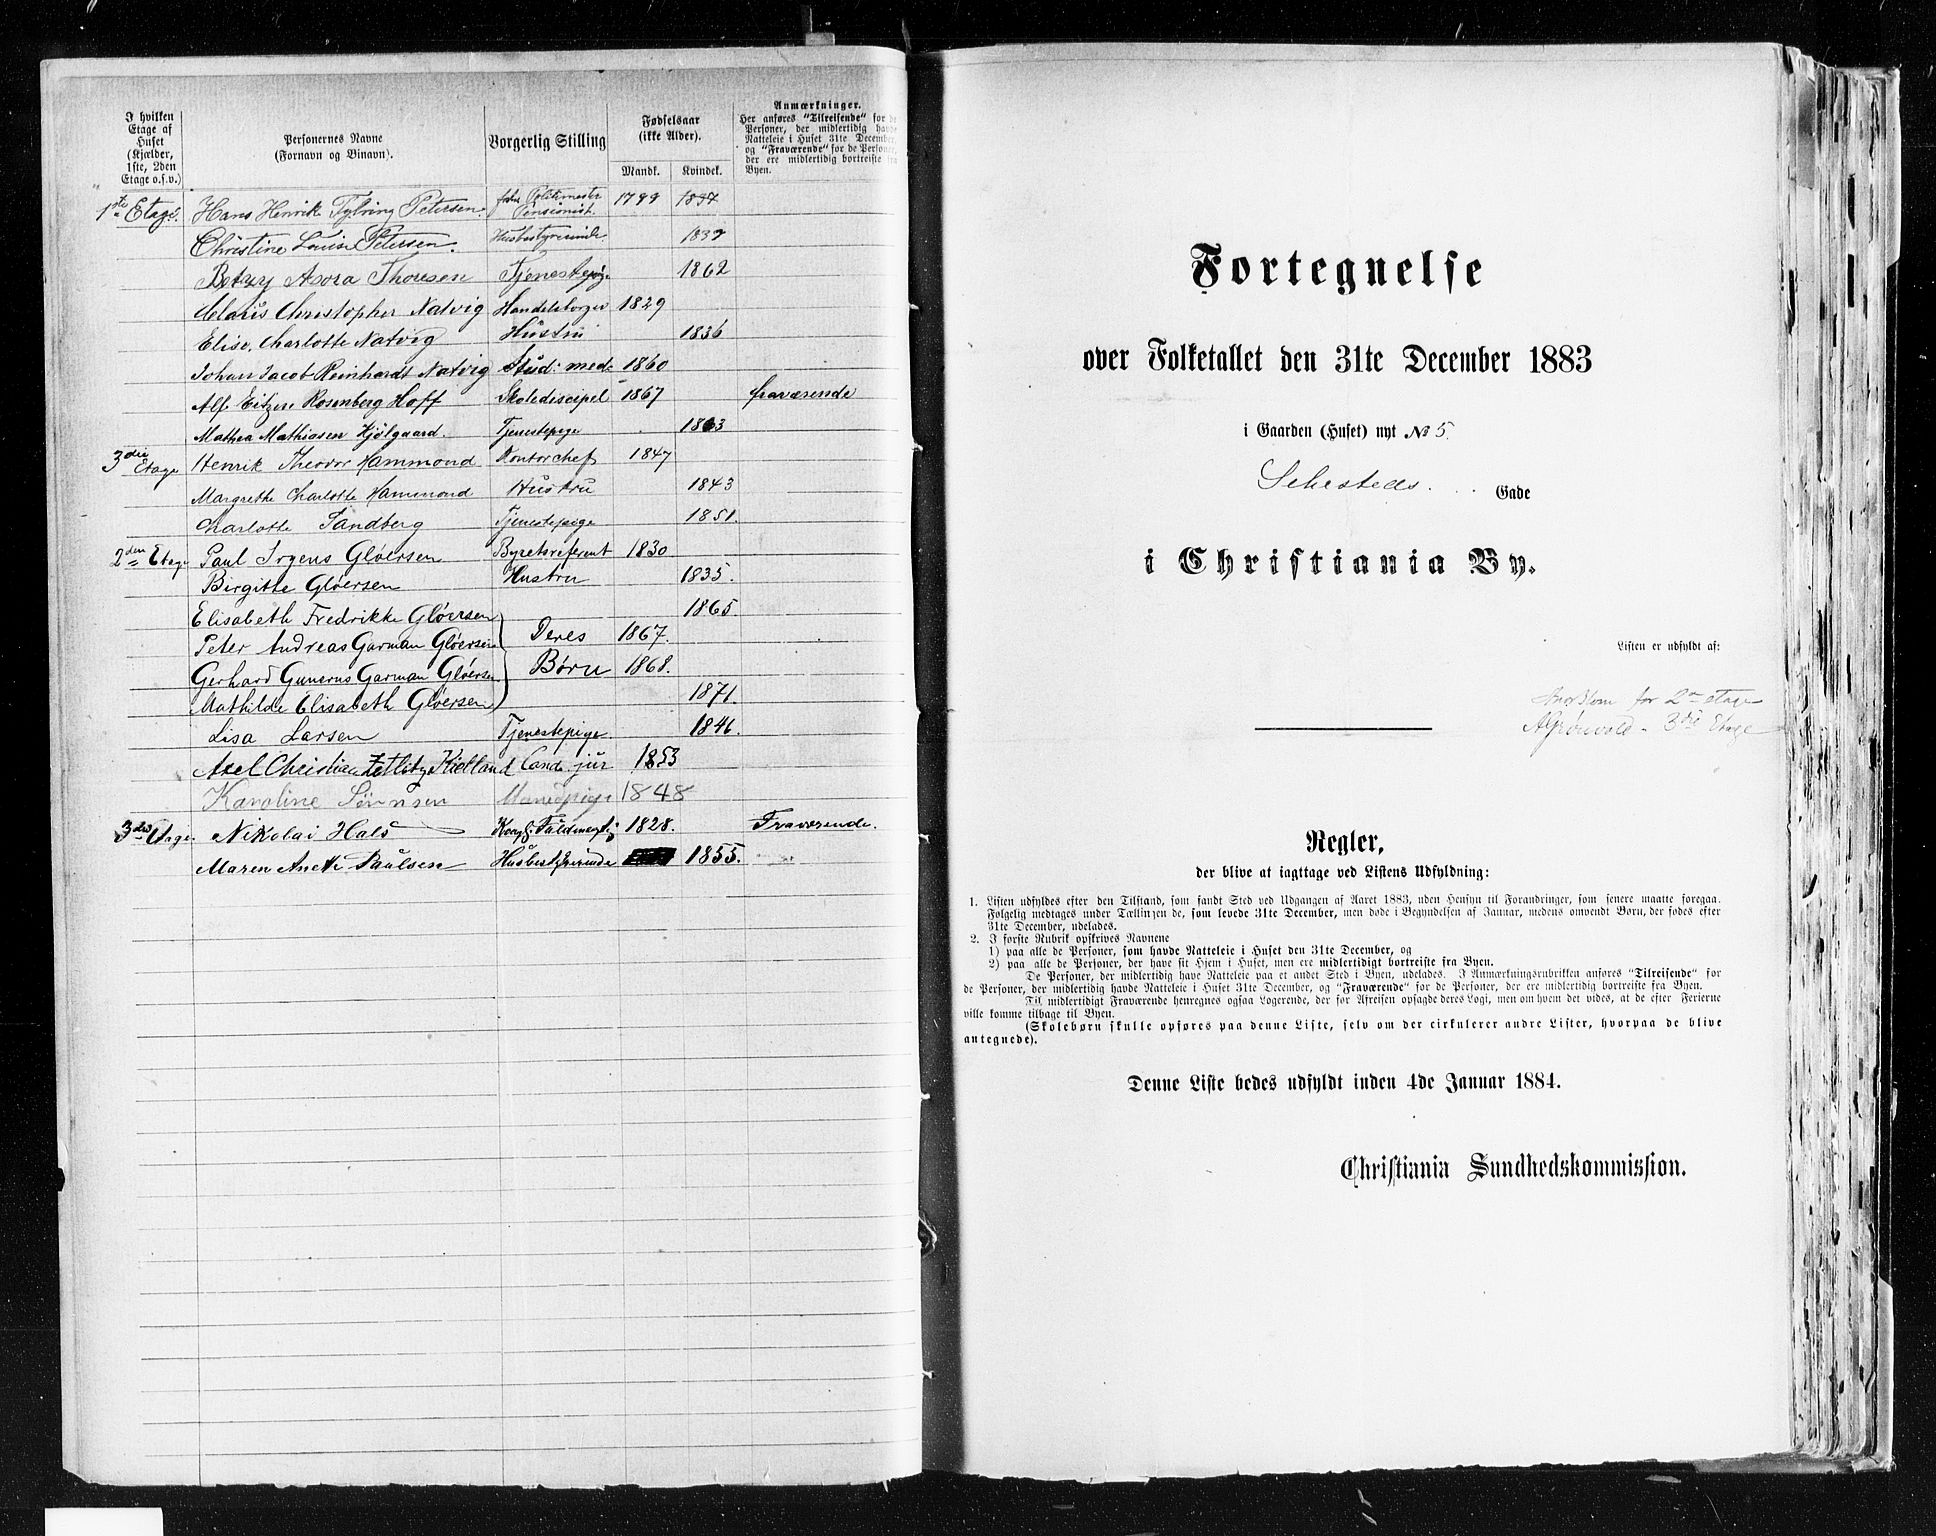 I hvilken Etage af Huset (Kjælder, 1ste, 2den Etage o.s.v.)
Personernes Navne (Fornavn og Binavn).
Borgerlig Stilling
Fødselsaar (ikke Alder).
Mandk. Kvindek.
Anmærkninger.
Her anføres "Tilreisende" for de Personer, der midlertidig havde Natteleie i Huset 31te December, og "Fraværende" for de Personer, der ere midlertidig bortreiste fra Byen.
1ste Etage. Hans Henrik Tybring Petersen. Politimester Pensionist. 1799
Christine Louise Petersen. Husbestyrerinde.
Betzy Asora Thoresen Tjenestepige 1862
Claus Christopher Natvig Handelsborger 1829
Elise Charlotte Natvig Hustru 1836
Johan Jacob Reinhardt Natvig Stud: med: 1860
Alf Eitzen Rosenberg Hoff Skolediscipel 1867 fraværende
Mathea Mathiasen Hjölgaard. Tjenestepige 1863
3die Etage Henrik Theodor Hammond Kontorchef 1847
Margrethe Charlotte Hammond Hustru 1843
Charlotte Sandberg Tjenestepige 1851.
2den Etage Paul Irgens Gløersen Byretsreferent 1830.
Birgitte Gløersen Hustru 1835.
Elisabeth Fredrikke Gløersen 1865.
Peter Andreas Garman Gløersen Deres 1867.
Gerhard Gunerus Garman Gløersen Børn 1868.
Mathilde Elisabeth Gløersen 1871.
Lisa Larsen Tjenestepige 1846.
Axel Christian Zetlitz Kielland Cand. jur 1853
Karoline Sørensen 1848
3die Etage. Nikolai Hals Fuldmægtig 1828. Fraværende.
Maren Anette Paulsen Husbestyrerinde 1855.
Fortegnelse
over Folketallet den 31te December 1883
i Gaarden (Huset) nyt № 5.
Sehesteds. Gade
i Christiania By.
Listen er udfyldt af:
for 2den etage
A Grønvold - 3die Etage
Regler,
der blive at iagttage ved Listens Udfyldning:
1. Listen udfyldes efter den Tilstand, som fandt Sted ved Udgangen af Aaret 1883, uden Hensyn til Forandringer, som senere maatte foregaa.
Følgelig medtages under Tællingen de, som levede 31te December, men døde i Begyndelsen af Januar, medens omvendt Børn, der fødes efter
31te December, udelades.
2. I første Rubrik opskrives Navnene
1) paa alle de Personer, som havde Natteleie i Huset den 31te December, og
2) paa alle de Personer, der have sit Hjem i Huset, men ere midlertidigt bortreiste fra Byen.
De Personer, der midlertidig have Natteleie paa et andet Sted i Byen, udelades. I Anmærkningsrubrikken anføres "Tilreisende" for
de Personer, der midlertidig havde Natteleie i Huset 31te December, og "Fraværende" for de Personer, der ere midlertidig bortreiste fra Byen.
Til midlertidigt Fraværende henregnes ogsaa Logerende, der før Afreisen opsagde deres Logi, men om hvem det vides, at de efter Ferierne
ville komme tilbage til Byen.
(Skolebørn skulle opføres paa denne Liste, selv om der cirkulerer andre Lister, hvorpaa de blive
antegnede).
Denne Liste bedes udfyldt inden 4de Januar 1884.
Christiania Sundhedskommission.